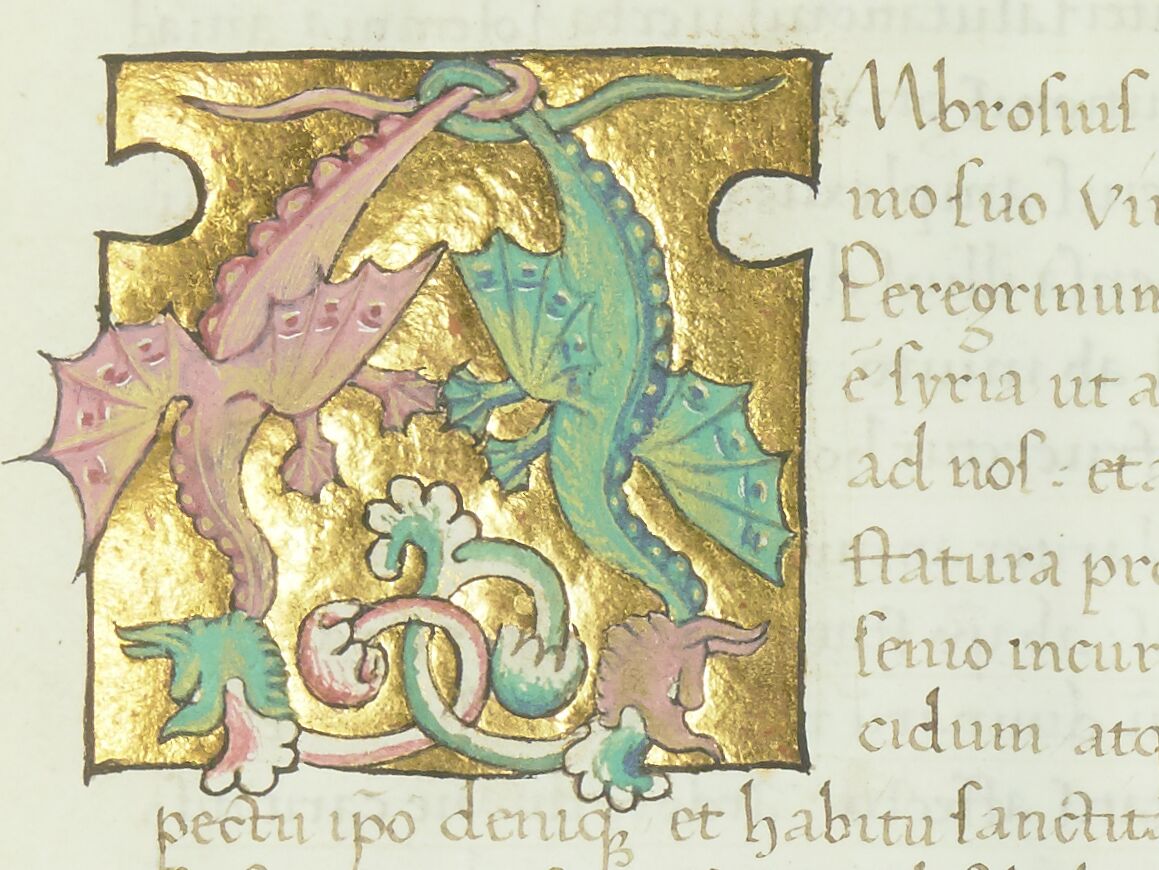 Mbrosiuſ
mo ſuo Vi
Peregrinum
ē ſyria ut a
ad noſ: et a
ſtatura pro
ſenio incur
cidum ato
pectu ip̄o deniqꝫ et habitu ſanctita